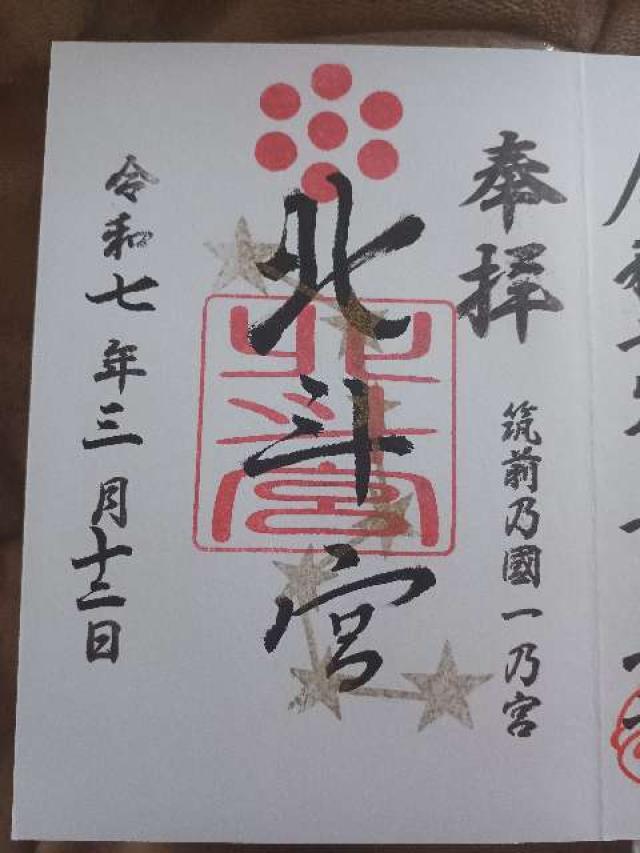 奉拝
筑前乃國一乃宮
北斗宮
北斗宮
令和七年三月十二日